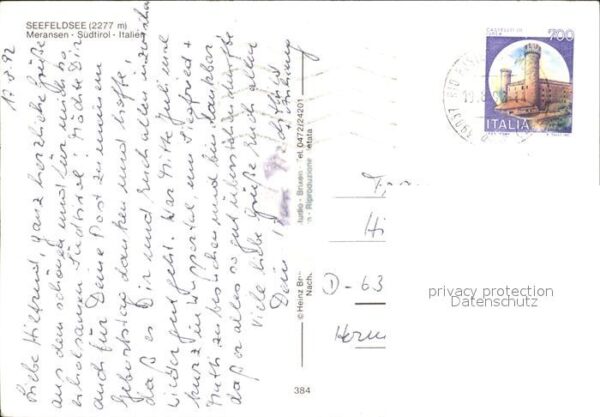 SEEFELDSEE (2277 m)
Meransen - Südtirol - Italien
13.8.92
Liebe Hiltrud, ganz herzliche Grüße
aus dem schönen und für mich so
erholsamen Südtirol! Möchte Dir
auch für Deine Post zu meinem
Geburtstag danken und hoffe,
daß es Dir und Euch allen inzwischen
wieder gut geht. War Mitte Juli mal
kurz in Wuppertal um Siegfried +
Ruth zu besuchen und bin dankbar
daß er alles so gut überstehen durfte
Viele liebe Grüße Euch allen
Dein
© Heinz
Studio - Brixen - Tel. 0472/24201
Nach
- Riproduzione vietata
384
CASTELLO DI
700
ITALIA
39037 RIO
Hi
D-63
privacy protection
Datenschutz